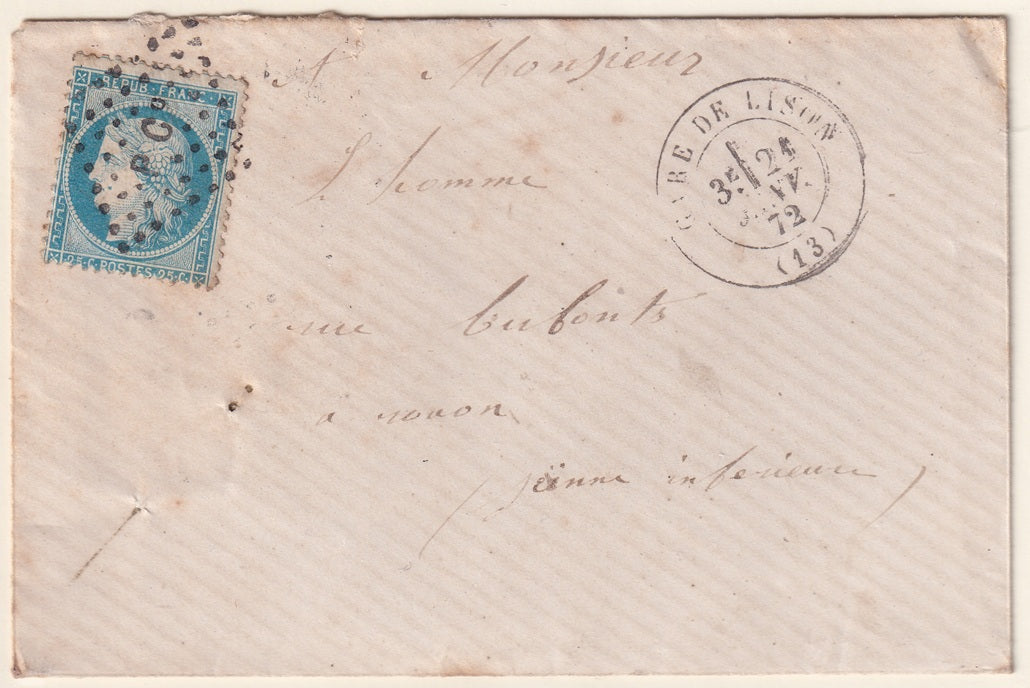 REPUB·FRANC
25·C·POSTES·25·C·
PC
GARE DE LISON
3E 24
JANV.
72
(13)
A Monsieur
L homme
rue bufonts
a rouon
( séinne inferieure )